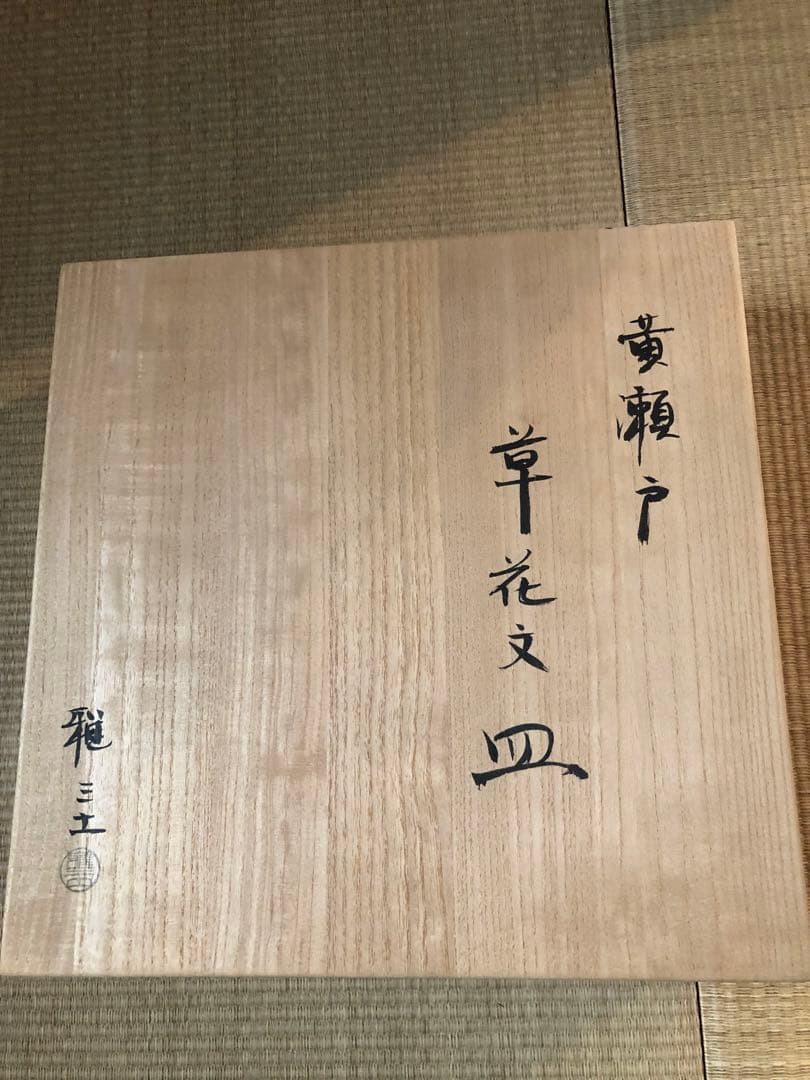 黄瀬戸
草花文皿
雅三土